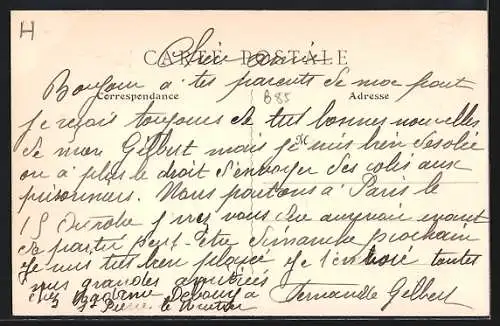 H
CARTE POSTALE
Chère amie
Bonjour a tes parents de moe pour
Correspondance
B85
Adresse
je reçois toujours de tres bonnes nouvelles
de mon Gilbert mais je suis bien désolée
on a plus le droit d'envoyer des colis aux
prisonniers. Nous partons a Paris le
15 Octobre j irez vous dire au revoir avant
de partir peut-être dimanche prochain
je suis tres bien place je t'envoie toutes
mes grandes amitiées
chez Madame
Pierre le
Fernande Gilbert